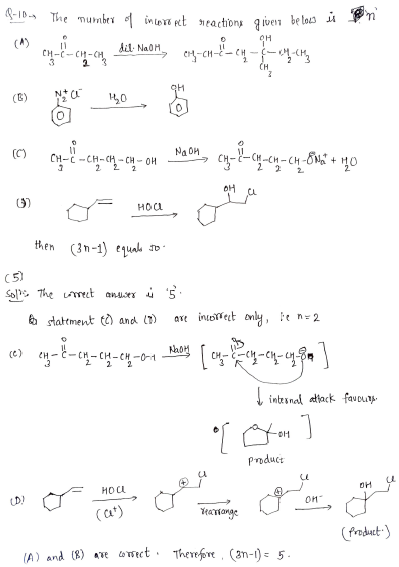 Q-10→ The number of incorrect reactions given below is 'n'
(A) CH3-C(=O)-CH2-CH3 —dil·NaOH→ CH3-CH2-C(=O)-CH2-C(OH)(CH3)-CH2-CH3
(B) N2+Cl- —H2O→ OH
(C) CH3-C(=O)-CH2-CH2-CH2-OH —NaOH→ CH3-C(=O)-CH2-CH2-CH2-ONa+ + H2O
(D) —HOCl→ OH Cl
then (3n-1) equals so·
(5)
Solⁿ: The correct answer is '5'.
statement (C) and (D) are incorrect only, i·e n=2
(C) CH3-C(=O)-CH2-CH2-CH2-O-H —NaOH→ [CH3-C(=O)-CH2-CH2-CH2-O⊖]
↓ internal attack favours
[ O OH ]
Product
(D) —HOCl (Cl+)→ ⊕ Cl —rearrange→ ⊕ Cl —OH-→ OH Cl
(Product·)
(A) and (B) are correct · Therefore, (3n-1) = 5 ·